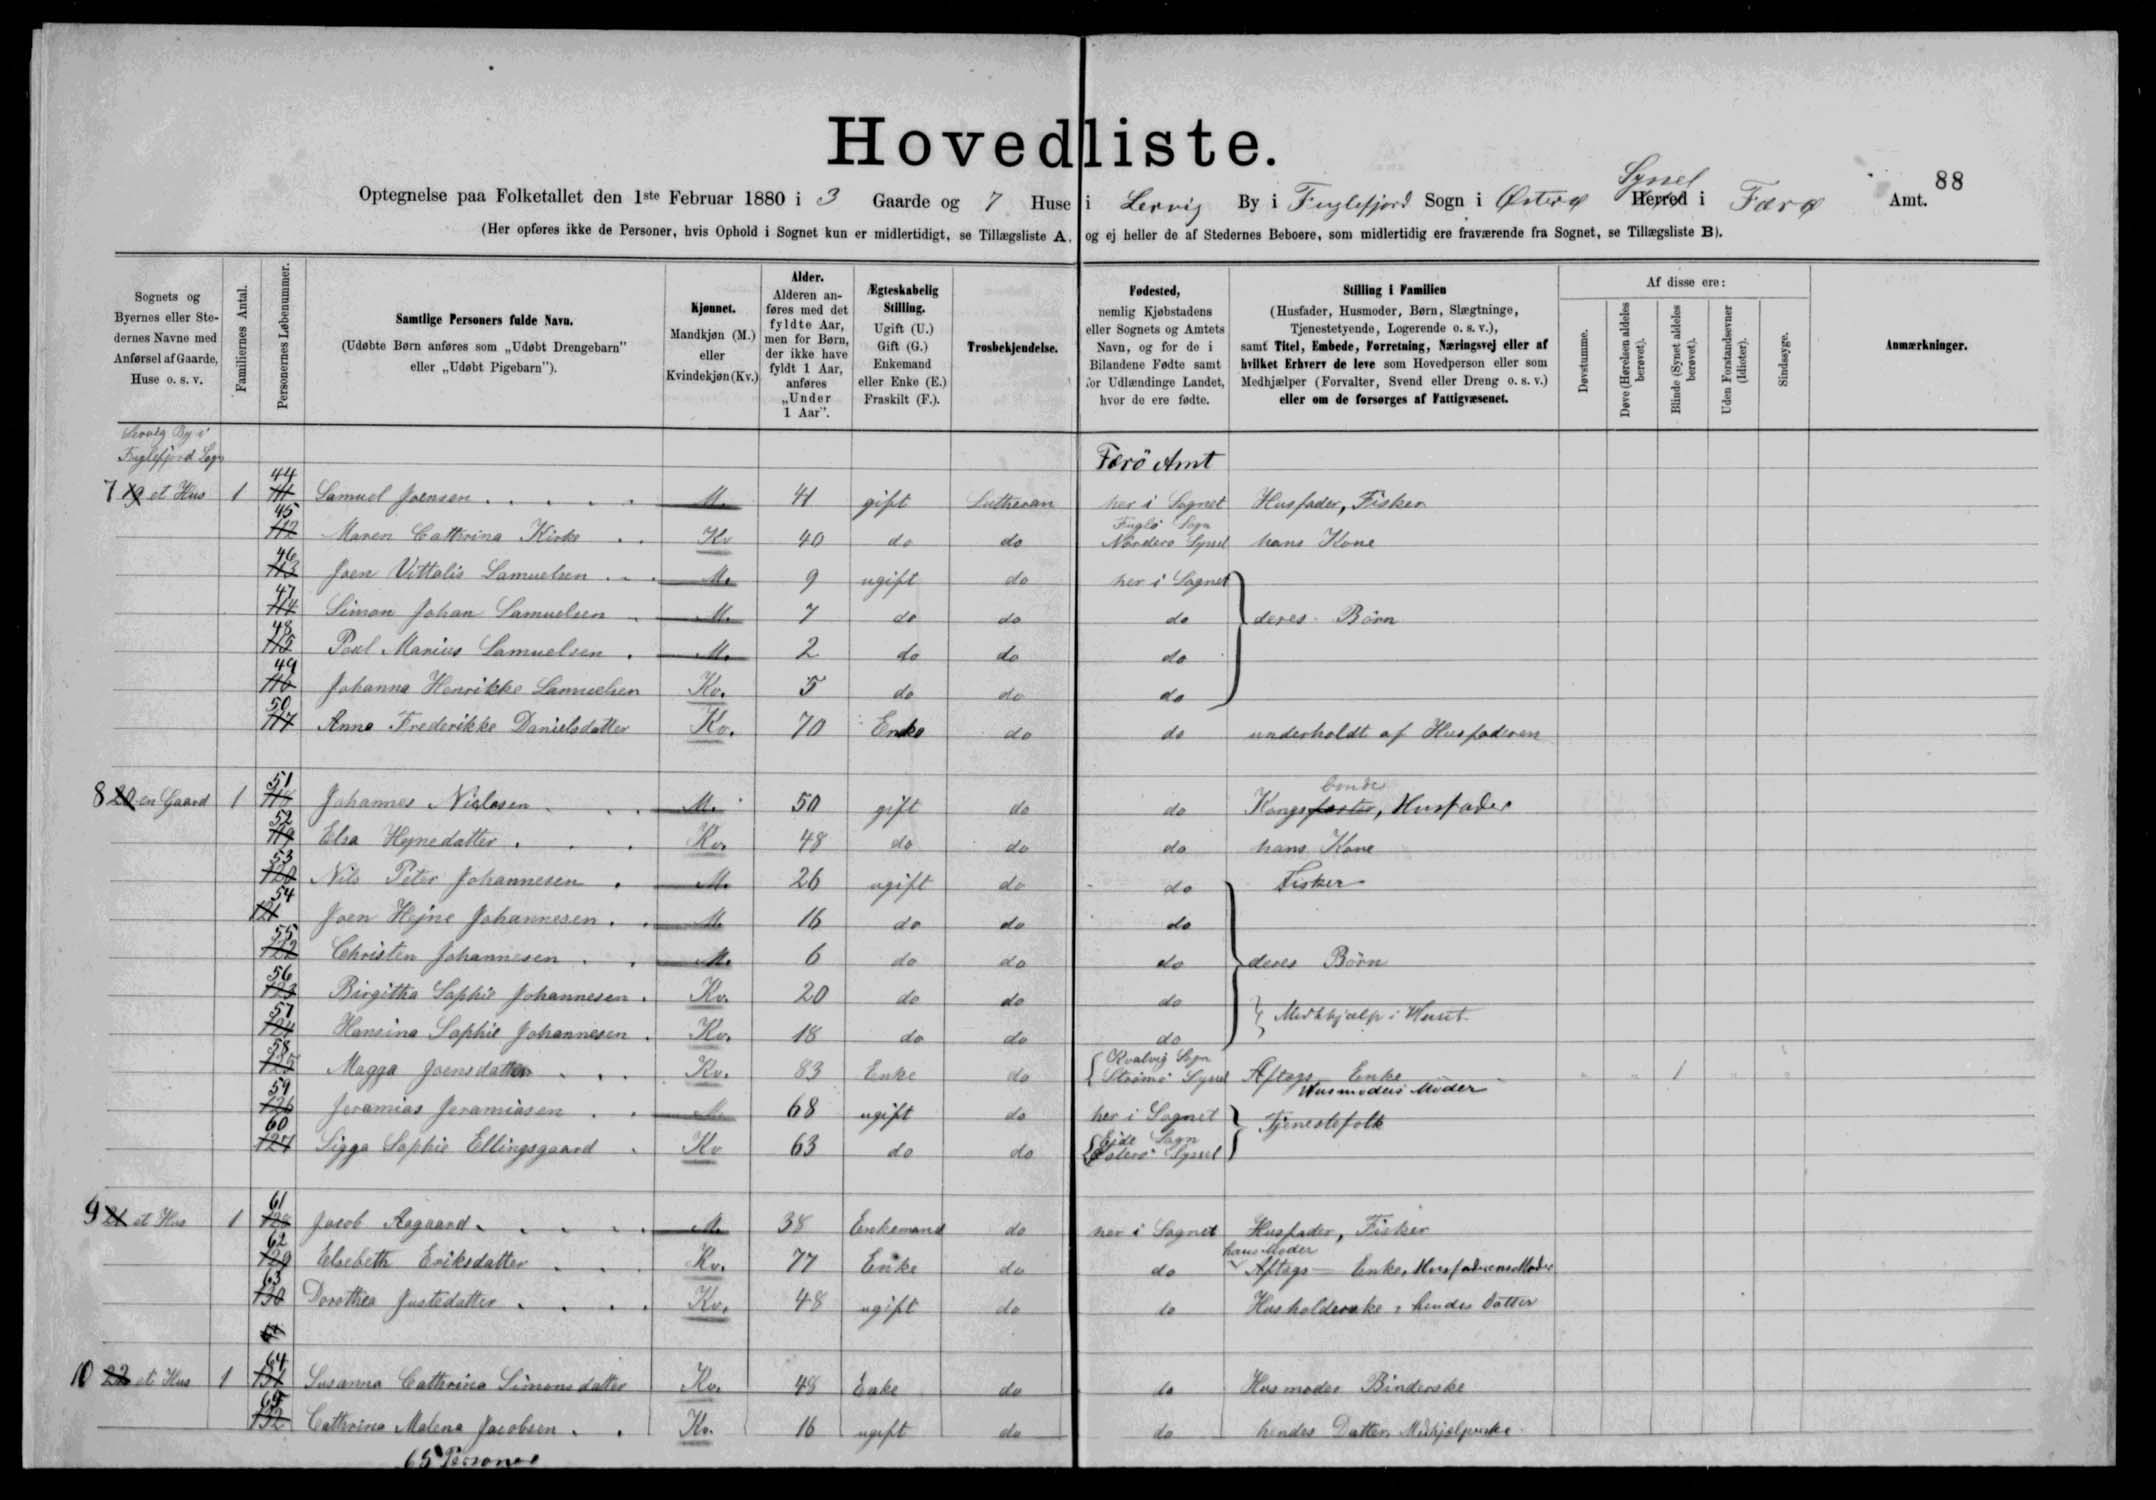 Hovedliste.
88
Optegnelse paa Folketallet den 1ste Februar 1880 i 3 Gaarde og 7 Huse i Lervig By i Fuglefjord Sogn i Østerø Herred Syssel i Færø Amt.
(Her opføres ikke de Personer, hvis Ophold i Sognet kun er midlertidigt, se Tillægsliste A, og ej heller de af Stedernes Beboere, som midlertidig ere fraværende fra Sognet, se Tillægsliste B).
Sognets og Byernes eller Stedernes Navne med Anførsel af Gaarde, Huse o. s. v.
Familiernes Antal.
Personernes Løbenummer.
Samtlige Personers fulde Navn.
(Udøbte Børn anføres som „Udøbt Drengebarn" eller „Udøbt Pigebarn").
Kjønnet.
Mandkjøn (M.) eller Kvindekjøn (Kv.)
Alder.
Alderen anføres med det fyldte Aar, men for Børn, der ikke have fyldt 1 Aar, anføres „Under 1 Aar".
Ægteskabelig Stilling.
Ugift (U.) Gift (G.) Enkemand eller Enke (E.) Fraskilt (F.).
Trosbekjendelse.
Fødested,
nemlig Kjøbstadens eller Sognets og Amtets Navn, og for de i Bilandene Fødte samt for Udlændinge Landet, hvor de ere fødte.
Stilling i Familien
(Husfader, Husmoder, Børn, Slægtninge, Tjenestetyende, Logerende o. s. v.),
samt Titel, Embede, Forretning, Næringsvej eller af hvilket Erhverv de leve som Hovedperson eller som Medhjælper (Forvalter, Svend eller Dreng o. s. v.)
eller om de forsørges af Fattigvæsenet.
Af disse ere:
Døvstumme.
Døve (Hørelsen aldeles berøvet).
Blinde (Synet aldeles berøvet).
Uden Forstandsevner (Idioter).
Sindssyge.
Anmærkninger.
Lervig By i
Fuglefjord Sogn
Færö Amt
7 19 et Hus 1 44 111 Samuel Joensen M. 41 gift Lutheran her i Sognet Husfader, Fisker
45 112 Maren Cathrina Kirke Kv 40 do do Fuglö Sogn Norderö Syssel hans Kone
46 113 Joen Vittalis Samuelsen M. 9 ugift do her i Sognet
47 114 Simon Johan Samuelsen M. 7 do do do deres Börn
48 115 Poul Marius Samuelsen M. 2 do do do
49 116 Johanna Henrikke Samuelsen Kv. 5 do do do
50 117 Anna Frederikke Danielsdatter Kv. 70 Enke do do underholdt af Husfaderen
8 20 en Gaard 1 51 118 Johannes Nielsen M. 50 gift do do Kongsfæster bonde, Husfader
52 119 Elsa Hejnedatter Kv. 48 do do do hans Kone
53 120 Nils Peter Johannesen M. 26 ugift do do Fisker
54 121 Joen Hejne Johannesen M 16 do do do
55 122 Christen Johannesen M. 6 do do do deres Börn
56 123 Birgitha Sophie Johannesen Kv. 20 do do do
57 124 Hansina Sophie Johannesen Kv. 18 do do do Medhjælp i Huset
58 125 Magga Joensdatter Kv. 83 Enke do Kvalvig Sogn Strömö Syssel Aftags Enke Husmoders Moder 1
59 126 Jeramias Jeramiasen M. 68 ugift do her i Sognet Tjenestefolk
60 127 Sigga Sophie Ellingsgaard Kv 63 do do Eide Sogn Österö Syssel
9 21 et Hus 1 61 128 Jacob Aagaard M. 38 Enkemand do her i Sognet Husfader, Fisker
62 129 Elsebeth Eriksdatter Kv. 77 Enke do do hans Moder Aftags Enke, Husfaderens Moder
63 130 Dorothea Justedatter Kv. 48 ugift do do Husholderske, hendes Datter
64
10 22 et Hus 1 64 131 Susanna Cathrina Simonsdatter Kv. 48 Enke do do Husmoder Binderske
65 132 Cathrina Malena Jacobsen Kv. 16 ugift do do hendes Datter, Medhjælperske
65 Personer